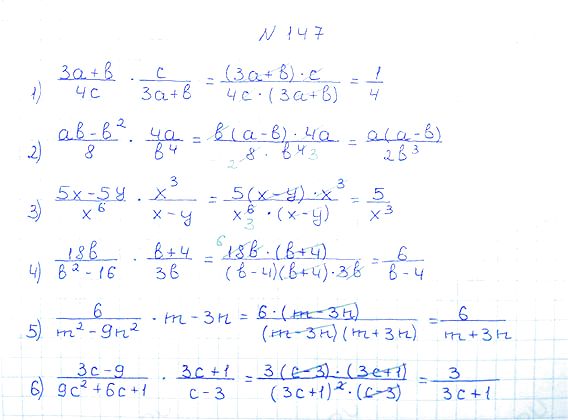 N 147
1) (3a+b)/(4c) · c/(3a+b) = ((3a+b)·c)/(4c·(3a+b)) = 1/4
2) (ab-b²)/8 · 4a/b⁴ = (b(a-b)·4a)/(8·b⁴) 2 3 = (a(a-b))/(2b³)
3) (5x-5y)/x⁶ · x³/(x-y) = (5(x-y)·x³)/(x⁶·(x-y)) 3 = 5/x³
4) 18b/(b²-16) · (b+4)/(3b) = 6 (18b·(b+4))/((b-4)(b+4)·3b) = 6/(b-4)
5) 6/(m²-9n²) · m-3n = (6·(m-3n))/((m-3n)(m+3n)) = 6/(m+3n)
6) (3c-9)/(9c²+6c+1) · (3c+1)/(c-3) = (3(c-3)·(3c+1))/((3c+1)²·(c-3)) = 3/(3c+1)